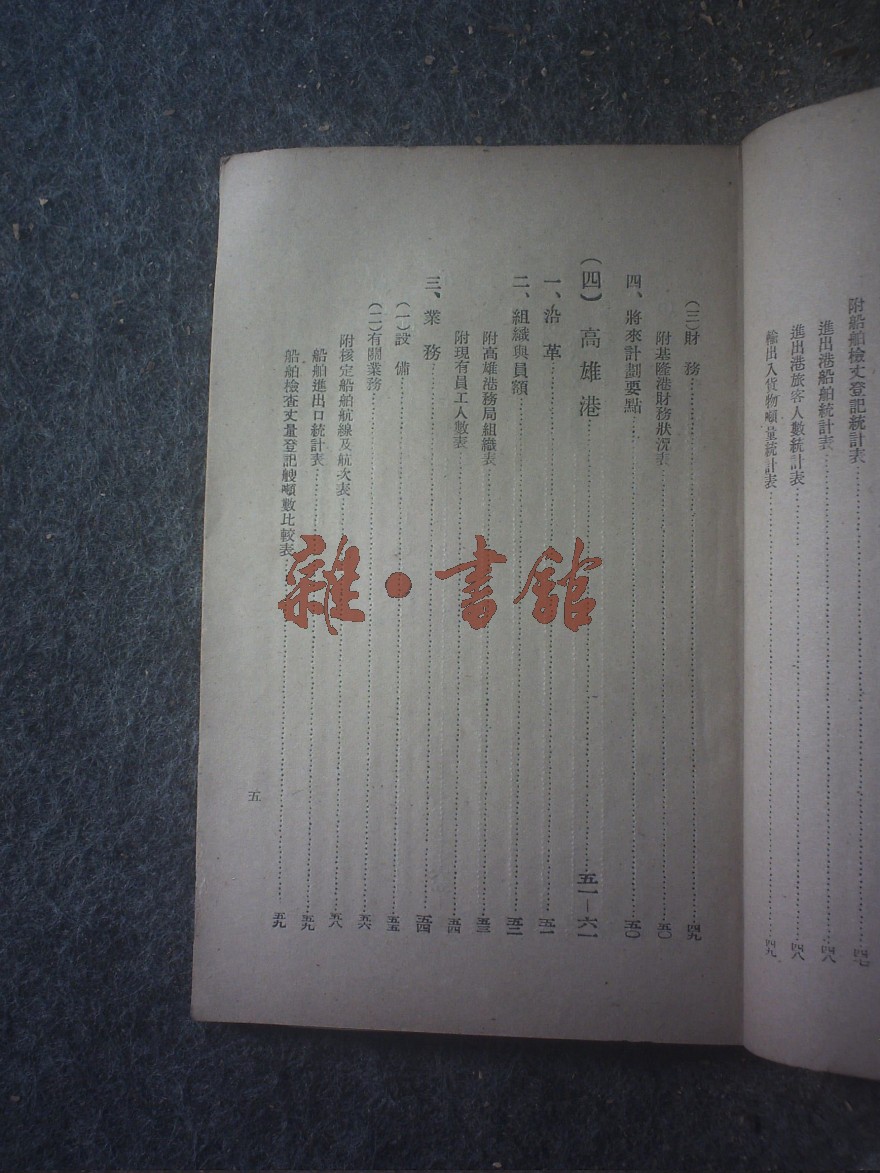 附船舶檢丈登記統計表⋯⋯四七
進出港船舶統計表⋯⋯四八
進出港旅客人數統計表⋯⋯四八
輸出入貨物噸量統計表⋯⋯四九
(三)財務⋯⋯四九
附基隆港財務狀況表⋯⋯五〇
四、將來計劃要點⋯⋯五〇
(四)高雄港⋯⋯五一—六一
一、沿革⋯⋯五一
二、組織與員額⋯⋯五二
附高雄港務局組織表⋯⋯五三
附現有員工人數表⋯⋯五四
三、業務⋯⋯五四
(一)設備⋯⋯五五
(二)有關業務⋯⋯五六
附核定船舶航線及航次表⋯⋯五八
船舶進出口統計表⋯⋯五九
船舶檢查丈量登記艘噸數比較表⋯⋯五九
五
雜·書館